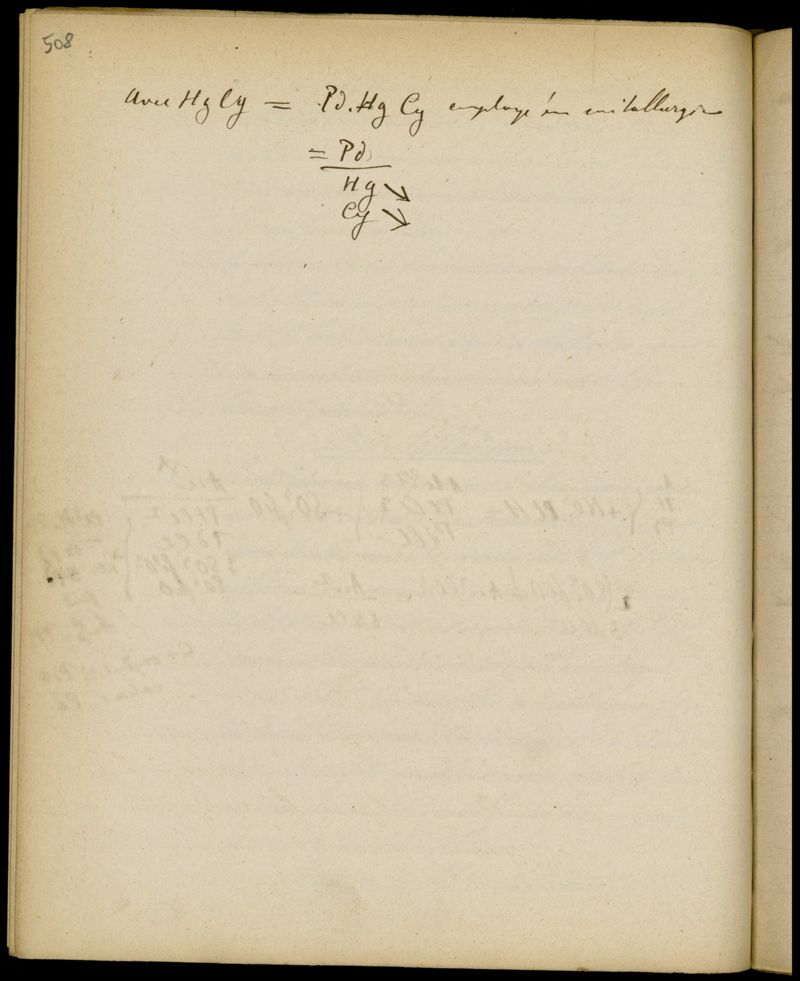 508
avec HgCy = Pd.HgCy employé en métallurgie
= Pd
Hg ↘
Cy ↘